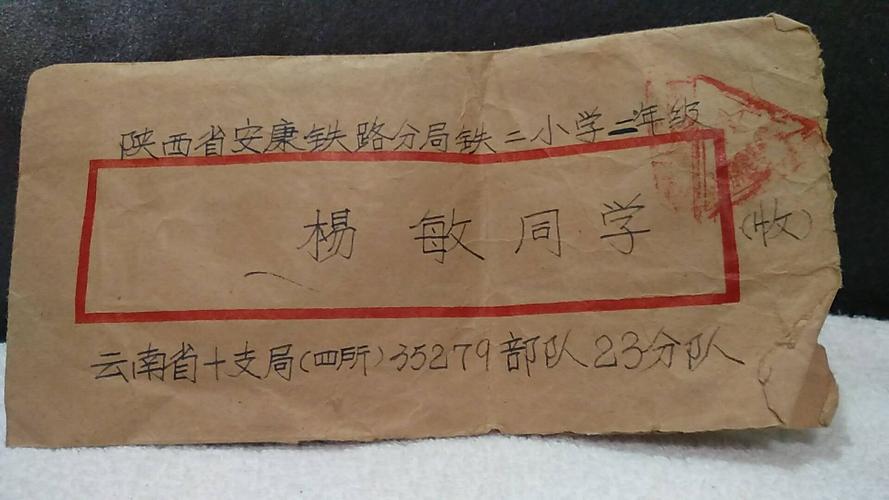 陕西省安康铁路分局铁二小学二年级
杨敏同学
(收)
云南省十支局(四所)35279部队23分队